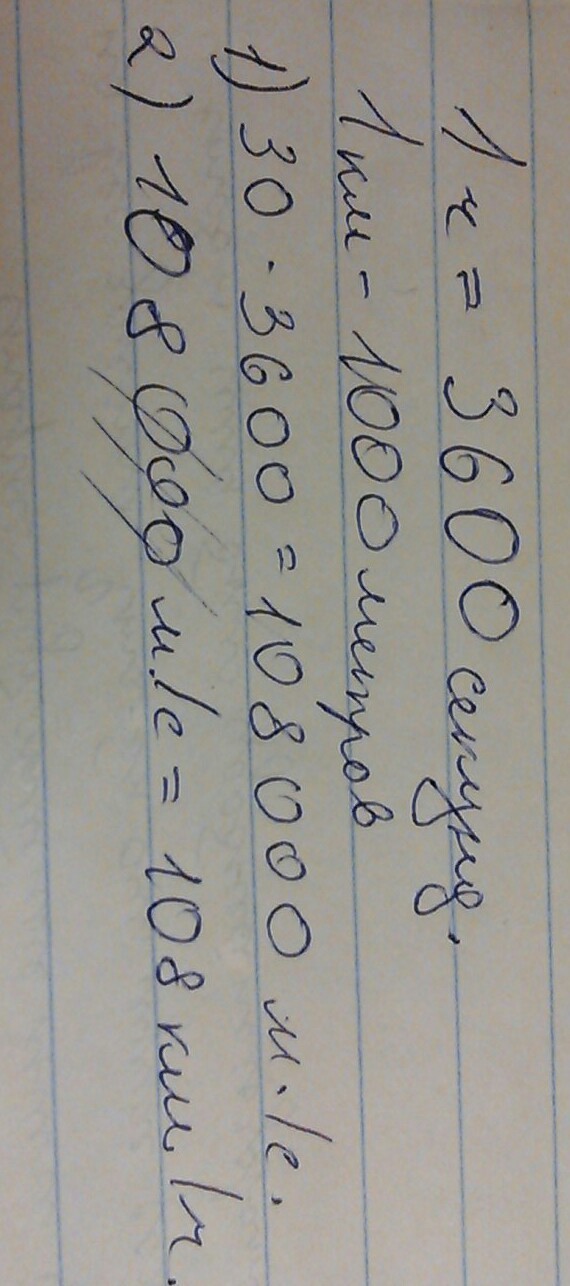 1 ч = 3600 секунд.
1 км - 1000 метров
1) 30 · 3600 = 108000 м./с.
2) 108000 м./с = 108 км./ч.